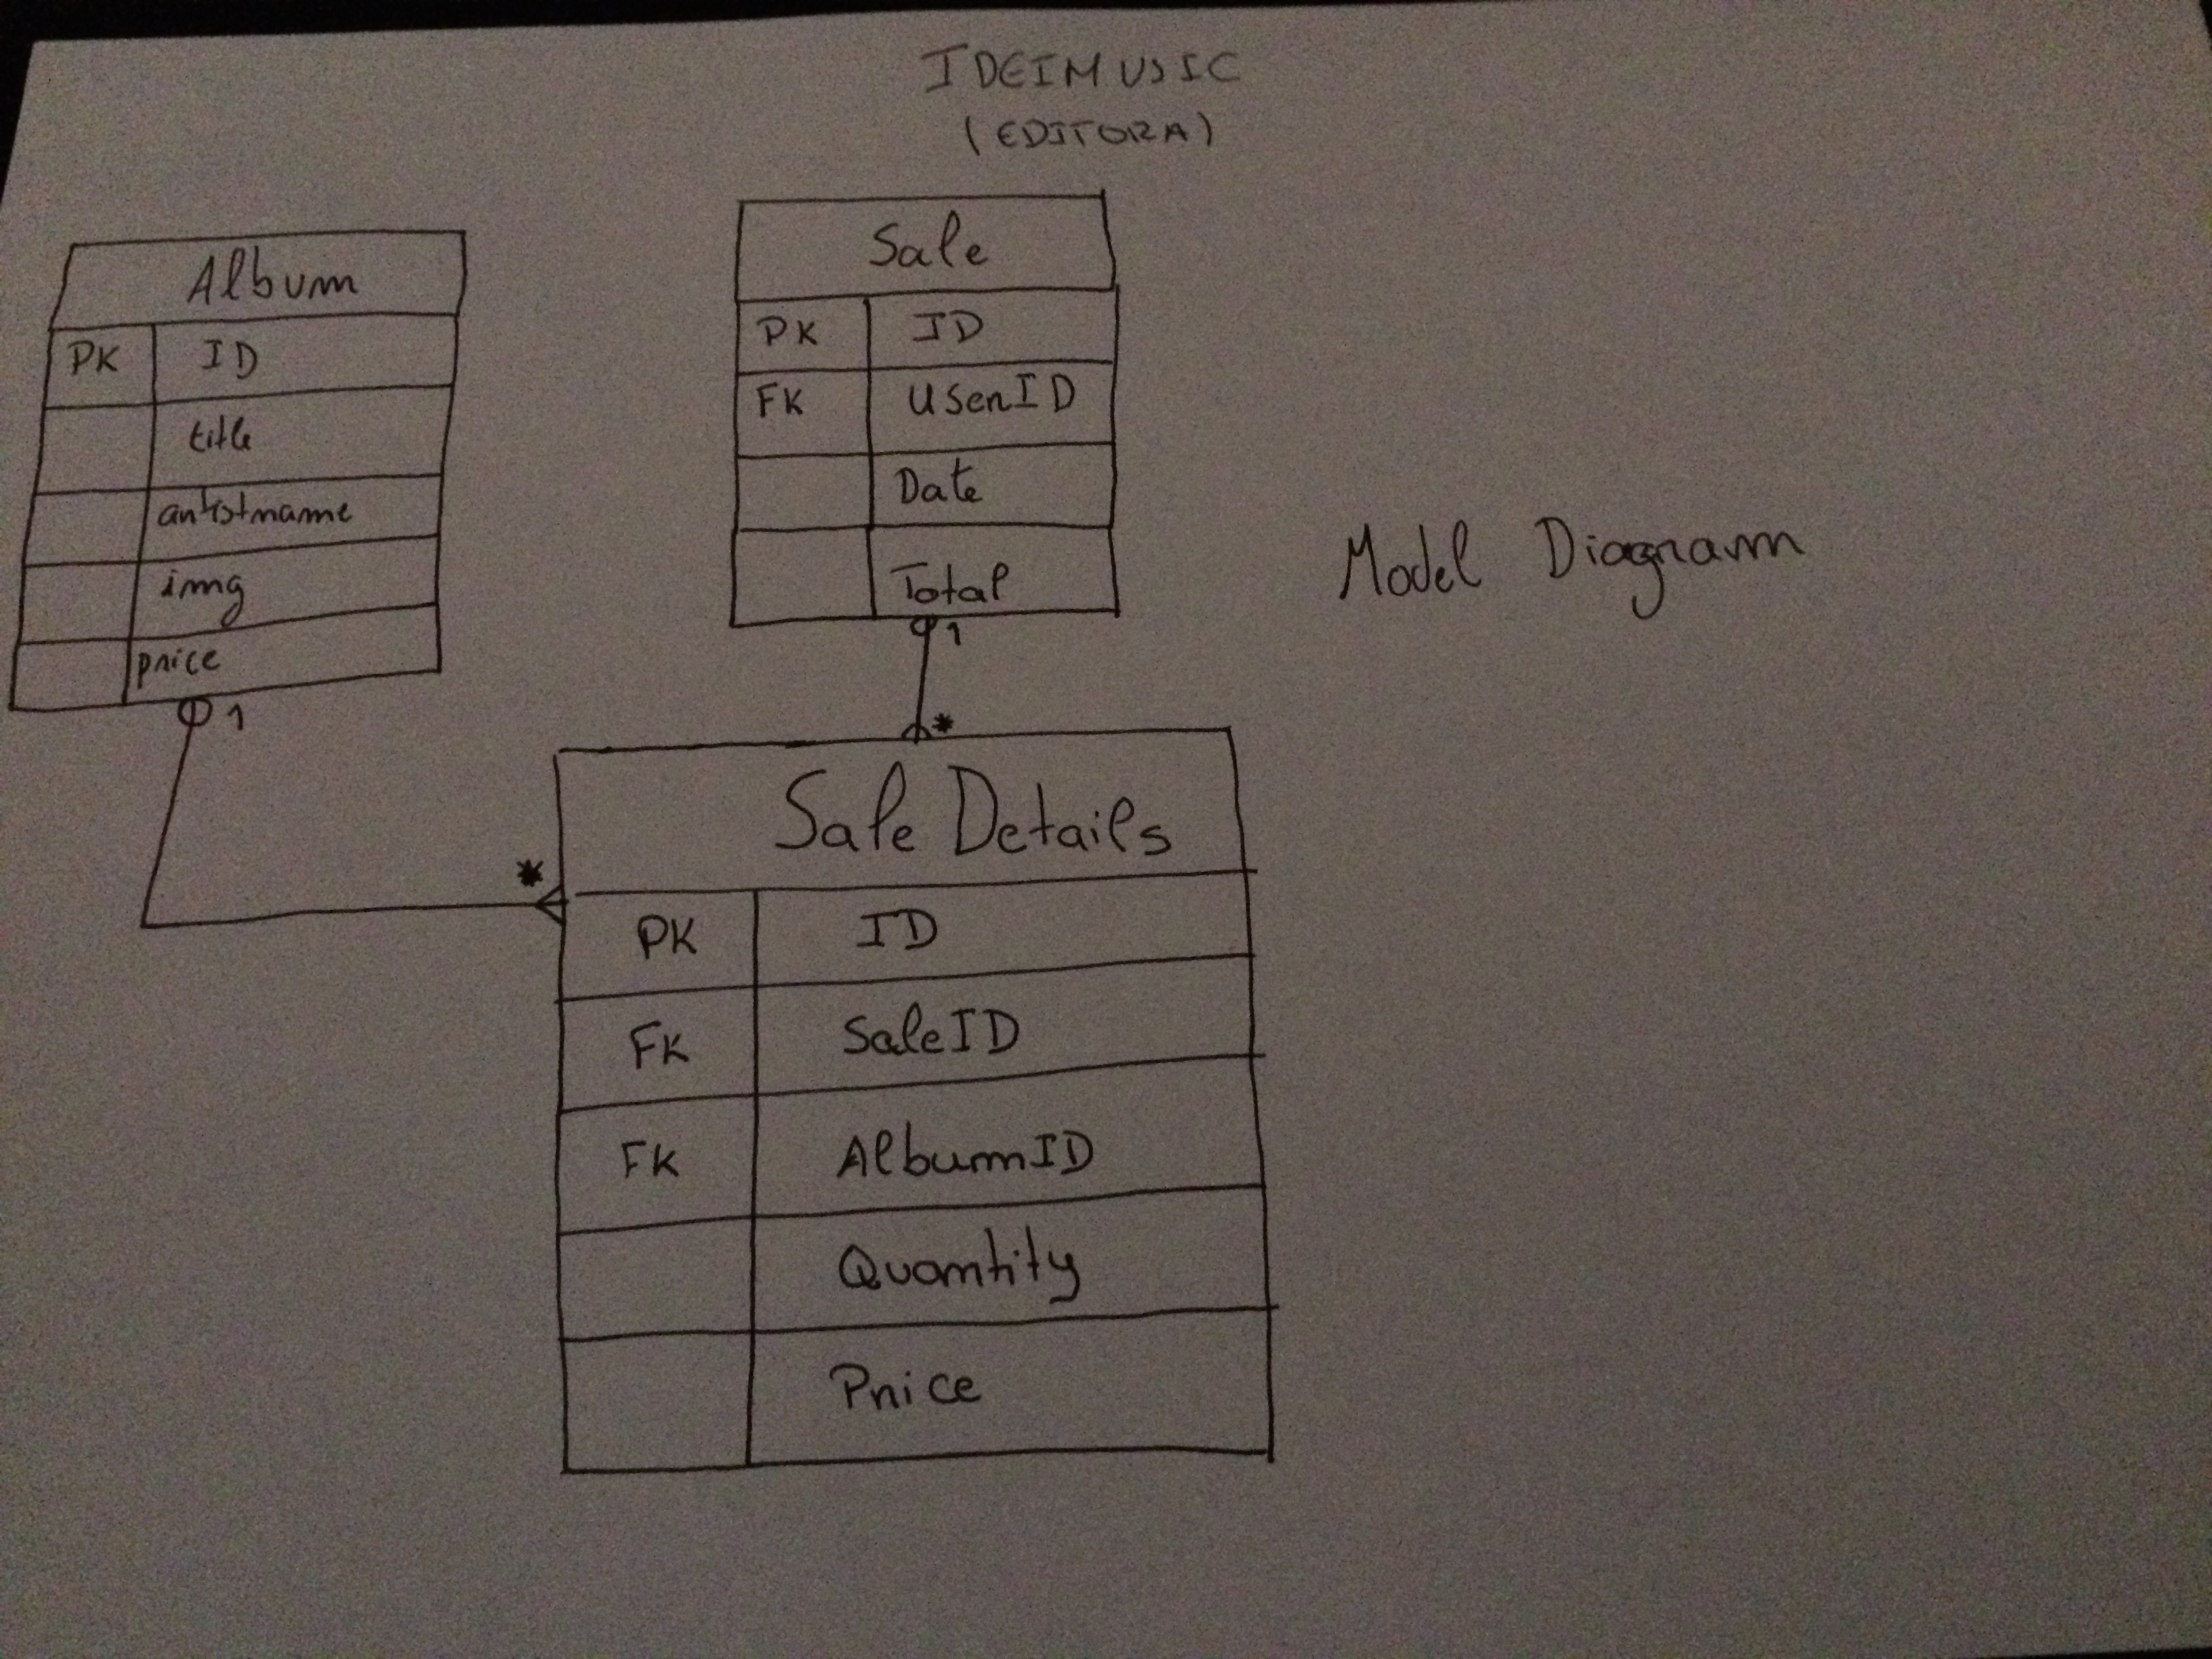 IDEIMUSIC
(EDITORA)
Album
PK ID
title
artistname
img
price
1
*
Sale
PK ID
FK UserID
Date
Total
1
*
Model Diagram
Sale Details
PK ID
FK SaleID
FK AlbumID
Quantity
Price